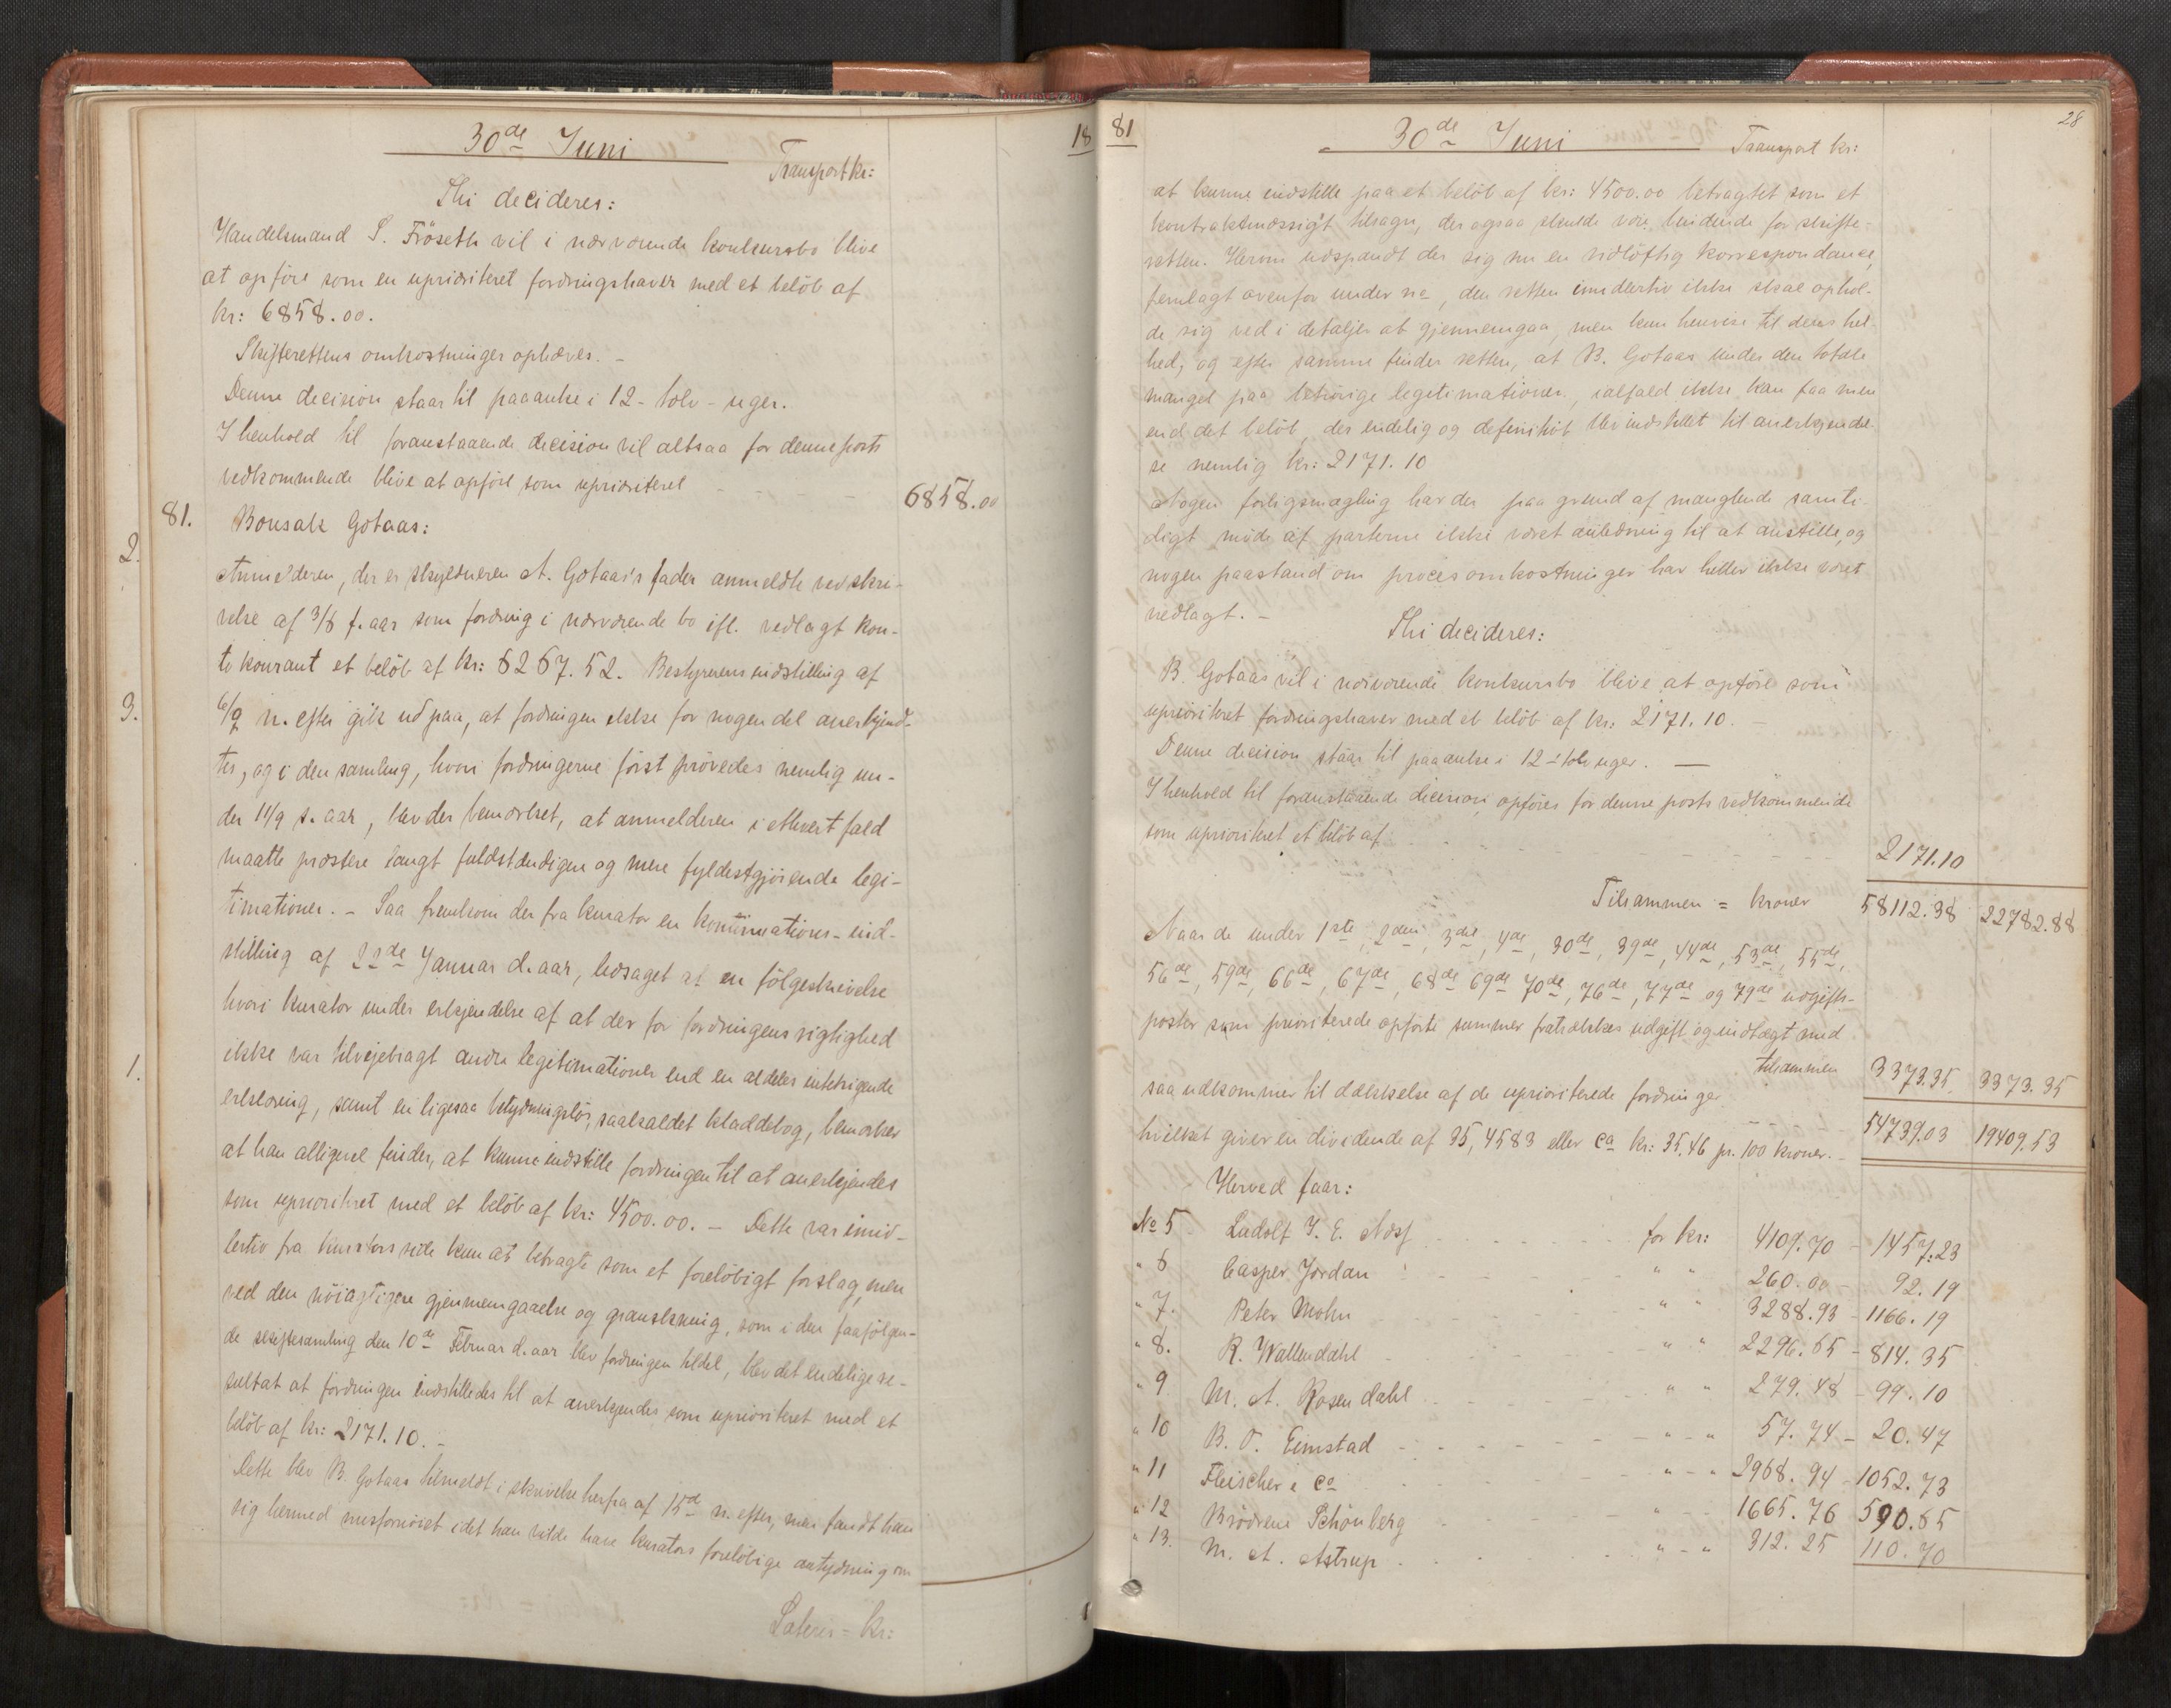 30de Juni
18
Transport kr:
Thi decideres:
Handelsmand S. Fröseth vil i nærværende konkursbo blive
at opföre som en uprioriteret fordringshaver med et belöb af
kr: 6858.00.
Skifterettens omkostninger ophæves. –
Denne decision staar til paaanke i 12 – tolv – uger.
I henhold til foranstaaende decision vil altsaa for denne posts
vedkommende blive at opföre som uprioriteret – – – – 6858.00
81. Bonsak Gotaas:
2.
Anmelderen, der er skyldneren A. Gotaas's fader anmeldte ved skri-
velse af 3/8 f. aar som fordring i nærværende bo ifl. vedlagt kon-
to kourant et belöb af kr: 6267.52. Bestyrerens indstilling af
3.
6/9 n. efter gik ud paa, at fordringen ikke for nogen del anerkjend-
tes, og i den samling, hvori fordringerne först prövedes nemlig un-
der 11/9 s. aar, blev der bemærket, at anmelderen i ethvert fald
maatte præstere langt fuldstændigere og mere fyldestgjörende legi-
timationer. – Saa fremkom der fra kurator en kontinuations-ind-
stilling af 22de Januar d. aar, ledsaget af en fölgeskrivelse
hvori kurator under erkjendelse af at der for fordringens rigtighed
1.
ikke var tilvejebragt andre legitimationer end en aldeles intetsigende
erklæring, samt en ligesaa betydningslös, saakaldet kladdebog, bemærker
at han alligevel finder, at kunne indstille fordringen til at anerkjendes
som uprioriteret med et belöb af kr: 4500.00. – Dette var imid-
lertid fra kurators side kun at betragte som et foreløbigt forslag, men
ved den nöiagtigere gjennemgaaelse og granskning, som i den paafölgen-
de skiftesamling den 10de Februar d. aar blev fordringen tildel, blev det endelige re-
sultat at fordringen indstilledes til at anerkjendes som uprioriteret med et
belöb af kr: 2171.10. –
Dette blev B. Gotaas tilmeldt i skrivelse herfra af 15de n. efter, men fandt han
sig hermed misfornöiet idet han vilde have kurators foreløbige antydning om
Lateris = kr:
81
28
30de Juni
Transport kr:
at kunne indstille paa et belöb af kr: 4500.00 betragtet som et
kontraktmæssigt tilsagn, der ogsaa skulde være bindende for skifte-
retten. Herom udspandt der sig nu en vidlöftig korrespondance,
fremlagt ovenfor under no, den retten imidlertid ikke skal ophol-
de sig ved i detaljer at gjennemgaa, men kun henvise til dens hel-
hed, og efter samme finder retten, at B. Gotaas under den totale
mangel paa behörige legitimationer, ialfald ikke kan faa mere
end det belöb, der endelig og definitivt blev indstillet til anerkjendel-
se nemlig kr: 2171.10
Nogen forligsmægling har der paa grund af manglende samti-
digt möde af parterne ikke været anledning til at anstille, og
nogen paastand om procesomkostninger har heller ikke været
nedlagt. –
Thi decideres:
B. Gotaas vil i nærværende konkursbo blive at opföre som
uprioriteret fordringshaver med et belöb af kr: 2171.10. –
Denne decision staar til paaanke i 12 – tolv uger. –
I henhold til foranstaaende decision opföres for denne posts vedkommende
som uprioriteret et belöb af – – – – 2171.10
Tilsammen = kroner 58112.38 22782.88
Naar de under 1ste, 2den, 3die, 4de, 30de, 39de, 44de, 53de, 55de,
56de, 59de, 66de, 67de, 68de 69de 70de, 76de, 77de og 79de udgifts-
poster som prioriterede opförte summer fratrækkes udgift og indtægt med
tilsammen 3373.35 3373.35
saa udkommer til dækkelse af de uprioriterede fordringer – – – 54739.03 19409.53
hvilket giver en dividende af 35,4583 eller ca kr: 35.46 pr. 100 kroner. –
Herved faar:
No 5 Ludolf J. E. Næss for kr: 4109.70 – 1457.23
" 6 Casper Jordan " " 260.00 – 92.19
" 7. Peter Mohn " " 3288.93 – 1166.19
" 8. R. Wallendahl " " 2296.65 – 814.35
" 9 M. A. Rosendahl " " 279.48 – 99.10
" 10 B. O. Eimstad " – " 57.74 – 20.47
" 11 Fleischer & Co " – " 2968.94 – 1052.73
" 12 Brödrene Schönberg " – 1665.76 590.65
" 13. M. A. Astrup " – " 312.25 110.70